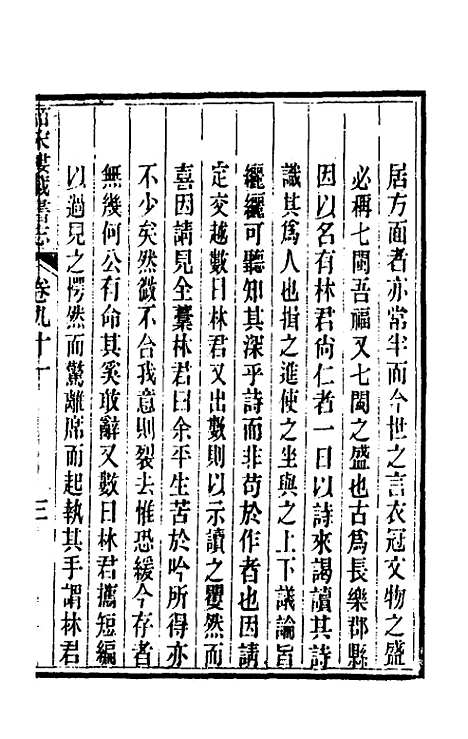 居方面者亦常半而今世之言衣冠文物之盛
必稱七閩吾福又七閩之盛也古爲長樂郡縣
因以名有林君尙仁者一日以詩來謁讀其詩
識其爲人也揖之進使之坐與之上下議論旨
纚纚可聽知其深乎詩而非苟於作者也因請
定交越數日林君又出數則以示讀之矍然而
喜因請見全藁林君曰余平生苦於吟所得亦
不少矣然微不合我意則裂去惟恐緩今存者
無幾何公有命其奚敢辭又數日林君攜短編
以過見之愕然而驚離席而起執其手謂林君
皕宋樓藏書志 卷九十一 三